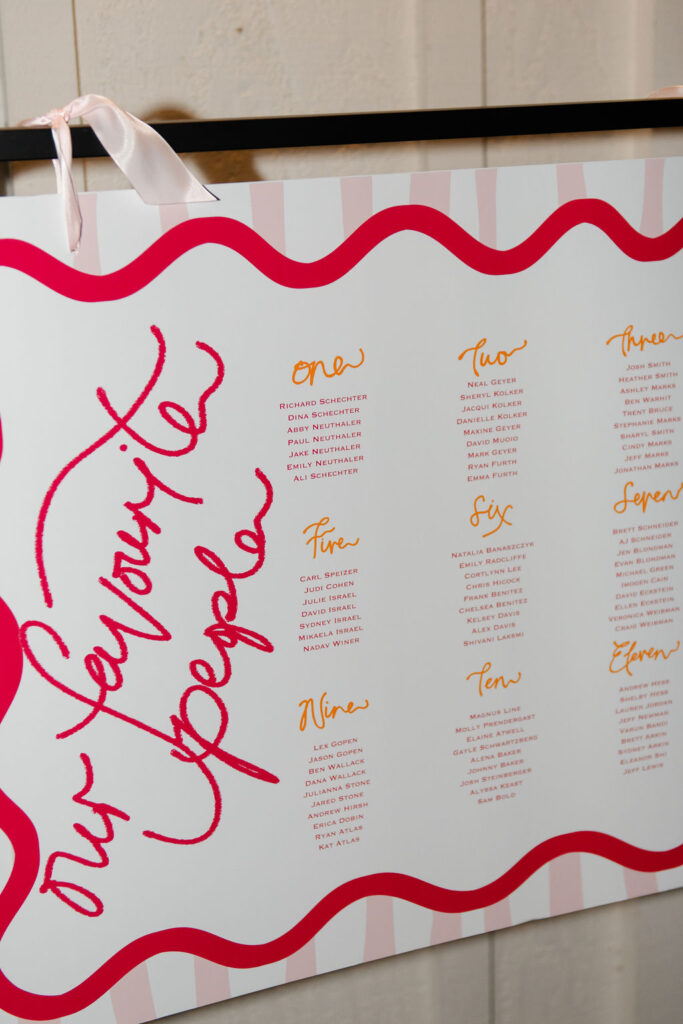 our favourite
people
one
RICHARD SCHECHTER
DINA SCHECHTER
ABBY NEUTHALER
PAUL NEUTHALER
JAKE NEUTHALER
EMILY NEUTHALER
ALI SCHECHTER
Two
NEAL GEYER
SHERYL KOLKER
JACQUI KOLKER
DANIELLE KOLKER
MAXINE GEYER
DAVID MUOIO
MARK GEYER
RYAN FURTH
EMMA FURTH
Three
JOSH SMITH
HEATHER SMITH
ASHLEY MARKS
BEN WARHIT
TRENT BRUCE
STEPHANIE MARKS
SHARYL SMITH
CINDY MARKS
JEFF MARKS
JONATHAN MARKS
Five
CARL SPEIZER
JUDI COHEN
JULIE ISRAEL
DAVID ISRAEL
SYDNEY ISRAEL
MIKAELA ISRAEL
NADAV WINER
Six
NATALIA BANASZCZYK
EMILY RADCLIFFE
CORTLYNN LEE
CHRIS HICOCK
FRANK BENITEZ
CHELSEA BENITEZ
KELSEY DAVIS
ALEX DAVIS
SHIVANI LAKSMI
Seven
BRETT SCHNEIDER
AJ SCHNEIDER
JEN BLONDMAN
EVAN BLONDMAN
MICHAEL GREEN
IMOGEN CAIN
DAVID ECKSTEIN
ELLEN ECKSTEIN
VERONICA WEISMAN
CRAIG WEISMAN
Nine
LEX GOPEN
JASON GOPEN
BEN WALLACK
DANA WALLACK
JULIANNA STONE
JARED STONE
ANDREW HIRSH
ERICA DOBIN
RYAN ATLAS
KAT ATLAS
Ten
MAGNUS LINE
MOLLY PRENDERGAST
ELAINE ATWELL
GAYLE SCHWARTZBERG
ALENA BAKER
JOHNNY BAKER
JOSH STEINBERGER
ALYSSA KEABY
SAM BOLD
Eleven
ANDREW HESS
SHELBY HESS
LAUREN JORDEN
JEFF NEWMAN
VARUN BANDI
BRETT ARKIN
SYDNEY ARKIN
ELEANOR SHI
JEFF LEWIS